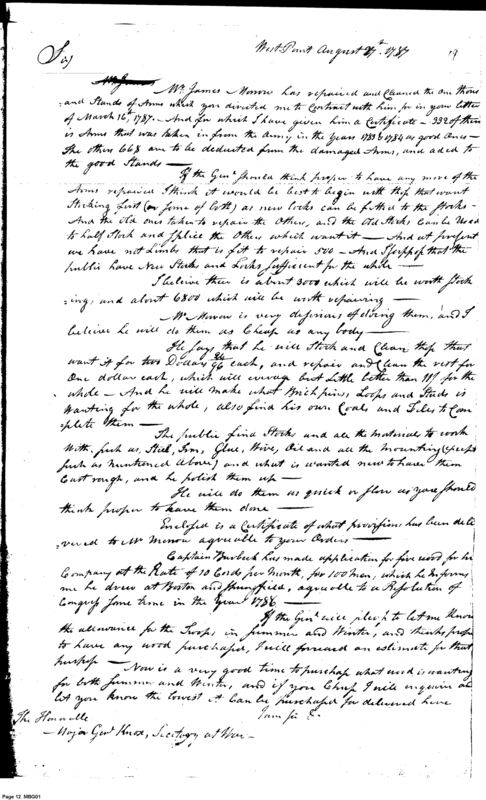 West Point August 27th 1787
19
Sir
Mr. James
Mr. James Morrow has repaired and Cleaned the One thous-
=and Stands of Arms which you directed me to Contract with him for in your letter
of March 16th 1787. And for which I have given him a Certificate - 332 of them
is Arms that was taken in from the Army in the Years 1783 & 1784 as good Ones -
The others 668 are to be deducted from the damaged Arms, and aded to
the good Stands -
If the Genl. should think proper to have any more of the
Arms repaired I think it would be best to begin with thos that want
Stocking first (or some of both) as new locks can be fitted to the Stocks -
And the old ones taken to repair the Others, and the old Stocks Can be Used
to half Stock and Splice the Others which want it - And at present
we have not Limbs that is fit to repair 500 - And I suppose that the
public have New Stocks and Locks sufficient for the whole -
I beleive their is about 3000 which will be worth Stock
=ing, and about 6800 which will be worth repairing -
Mr. Morrow is very desirous of doing them, and I
beleive he will do them as Cheap as any body -
He says that he will Stock and Clean thos that
want it for two Dollars each, and repair and Clean the rest for
One dollar each, which will average but little better than for the
whole - And he will make what Brich pins, Loops and Studs is
Wanting for the whole, also find his own Coals and Files to Com
plete them -
The public find Stocks and all the Materials to work
With, such as, Steel, Iron, Glue, Wire, Oil and all the Mounting (except
such as Mentioned Above) and what is wanted new to have them
Cast rough, and he polish them up -
He will do them as quick or slow as you should
think proper to have them done -
Enclosed is a Certificate of what provisions has been deli
=vered to Mr Morrow agreeable to your Orders -
Captain Burbeck has made application for fire wood for his
Company at the Rate of 10 Cords per Month, for 100 Men, which he Informs
me he drew at Boston and Springfield, agreeable to a Resolution of
Congress some time in the Year 1786 -
If the Genl. will please to let me Know
the allowance for the Troops in Summer and Winter, and thinks proper
to have any wood purchased, I will forward an estimate for that
purpose -
Now is a very good time to purchase what wood is wanting
for both Summer and Winter, and if you Chuse I will enquire and
let you know the lowest it Can be purchased for delivered here
I am Sir &c.
The Honorable
- Major Genl Knox, Secretary at War -
Page 12 MBG01